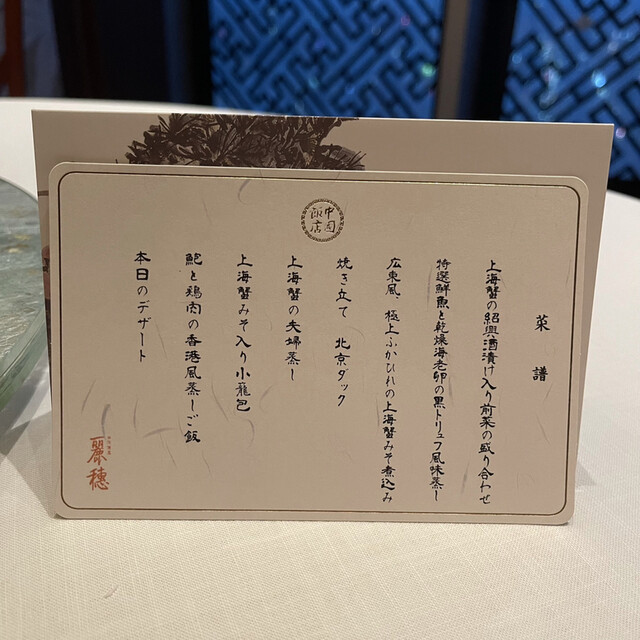 中国
飯店
菜譜
上海蟹の紹興酒漬け入り前菜の盛り合わせ
特選鮮魚と乾燥海老卵の黒トリュフ風味蒸し
広東風、極上ふかひれの上海蟹みそ煮込み
焼き立て 北京ダック
上海蟹の夫婦蒸し
上海蟹みそ入り小籠包
鮑と鶏肉の香港風蒸しご飯
本日のデザート
麗穂